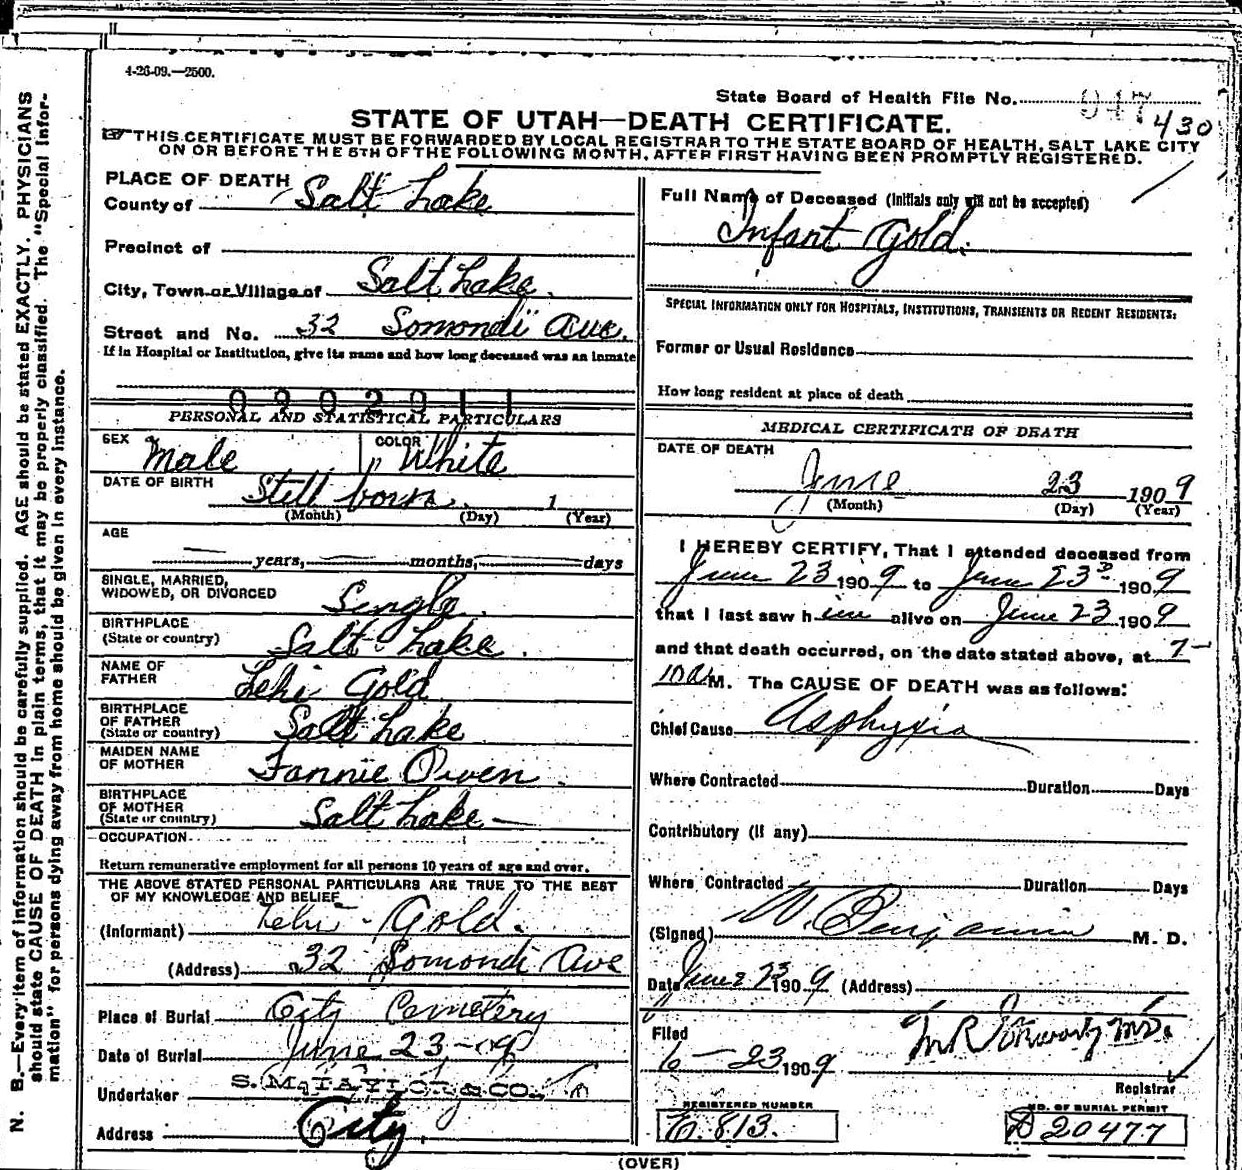 4-26-09.—2500.
State Board of Health File No. 947
430
STATE OF UTAH—DEATH CERTIFICATE.
☞THIS CERTIFICATE MUST BE FORWARDED BY LOCAL REGISTRAR TO THE STATE BOARD OF HEALTH, SALT LAKE CITY
ON OR BEFORE THE 5TH OF THE FOLLOWING MONTH, AFTER FIRST HAVING BEEN PROMPTLY REGISTERED.
PLACE OF DEATH
County of Salt Lake
Precinct of
City, Town or Village of Salt Lake.
Street and No. 32 Somondi Ave.
If in Hospital or Institution, give its name and how long deceased was an inmate
0902011
PERSONAL AND STATISTICAL PARTICULARS
SEX Male COLOR White
DATE OF BIRTH Still born. 1
(Month) (Day) (Year)
AGE
years, months, days
SINGLE, MARRIED,
WIDOWED, OR DIVORCED Single.
BIRTHPLACE
(State or country) Salt Lake.
NAME OF
FATHER Lehi Gold
BIRTHPLACE
OF FATHER
(State or country) Salt Lake
MAIDEN NAME
OF MOTHER Fannie Owen.
BIRTHPLACE
OF MOTHER
(State or country) Salt Lake—
OCCUPATION
Return remunerative employment for all persons 10 years of age and over.
THE ABOVE STATED PERSONAL PARTICULARS ARE TRUE TO THE BEST
OF MY KNOWLEDGE AND BELIEF
(Informant) Lehi Gold.
(Address) 32 Somondi Ave
Place of Burial City Cemetery
Date of Burial June 23-09
Undertaker S. M. TAYLOR & CO.,
Address City.
Full Name of Deceased (Initials only will not be accepted)
Infant Gold.
SPECIAL INFORMATION ONLY FOR HOSPITALS, INSTITUTIONS, TRANSIENTS OR RECENT RESIDENTS:
Former or Usual Residence
How long resident at place of death
MEDICAL CERTIFICATE OF DEATH
DATE OF DEATH
June 23 1909
(Month) (Day) (Year)
I HEREBY CERTIFY, That I attended deceased from
June 23 1909 to June 23D 1909
that I last saw him alive on June 23 1909
and that death occurred, on the date stated above, at 7-
10 a M. The CAUSE OF DEATH was as follows:
Chief Cause Asphyxia
Where Contracted Duration Days
Contributory (if any)
Where Contracted Duration Days
(Signed) W. Benjamin M. D.
Date June 23 1909 (Address)
Filed
6-23 1909
M.D.
Registrar
REGISTERED NUMBER
E. 813.
NO. OF BURIAL PERMIT
D 20477
(OVER)
N. B.—Every item of information should be carefully supplied. AGE should be stated EXACTLY. PHYSICIANS
should state CAUSE OF DEATH in plain terms, that it may be properly classified. The "Special Infor-
mation" for persons dying away from home should be given in every instance.